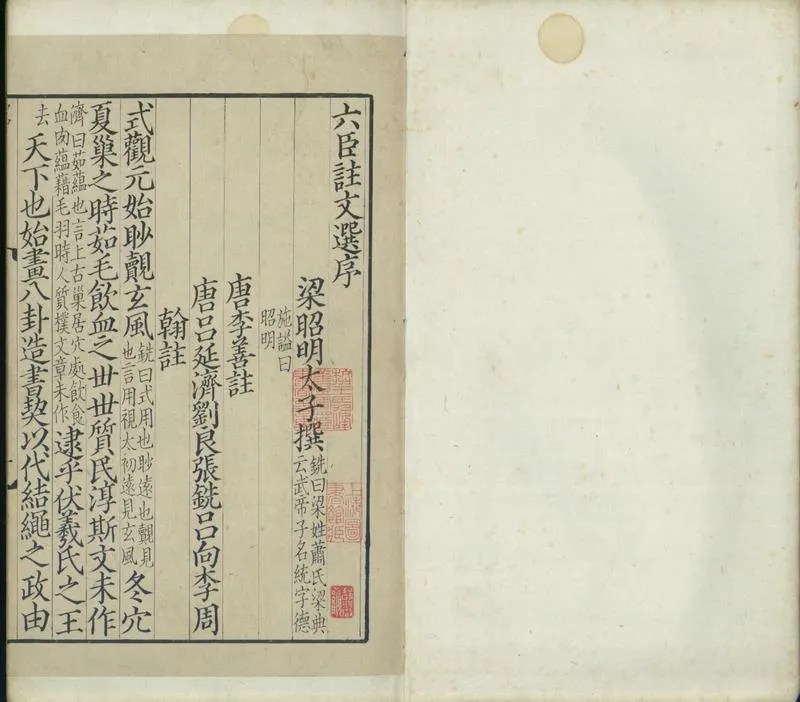 六臣註文選序
梁昭明太子撰銑曰梁姓蕭氏梁典云武帝子名統字德
施謚曰昭明
唐李善註
唐呂延濟劉良張銑呂向李周
翰註
式觀元始眇覿玄風銑曰式用也眇遠也覿見也言用視太初遠見玄風冬穴
夏巢之時茹毛飲血之世世質民淳斯文未作
濟曰茹蘊也言上古巢居穴處飲食血肉蘊藉毛羽時人質撲文章未作逮乎伏羲氏之王
去天下也始畫八卦造書契以代結繩之政由